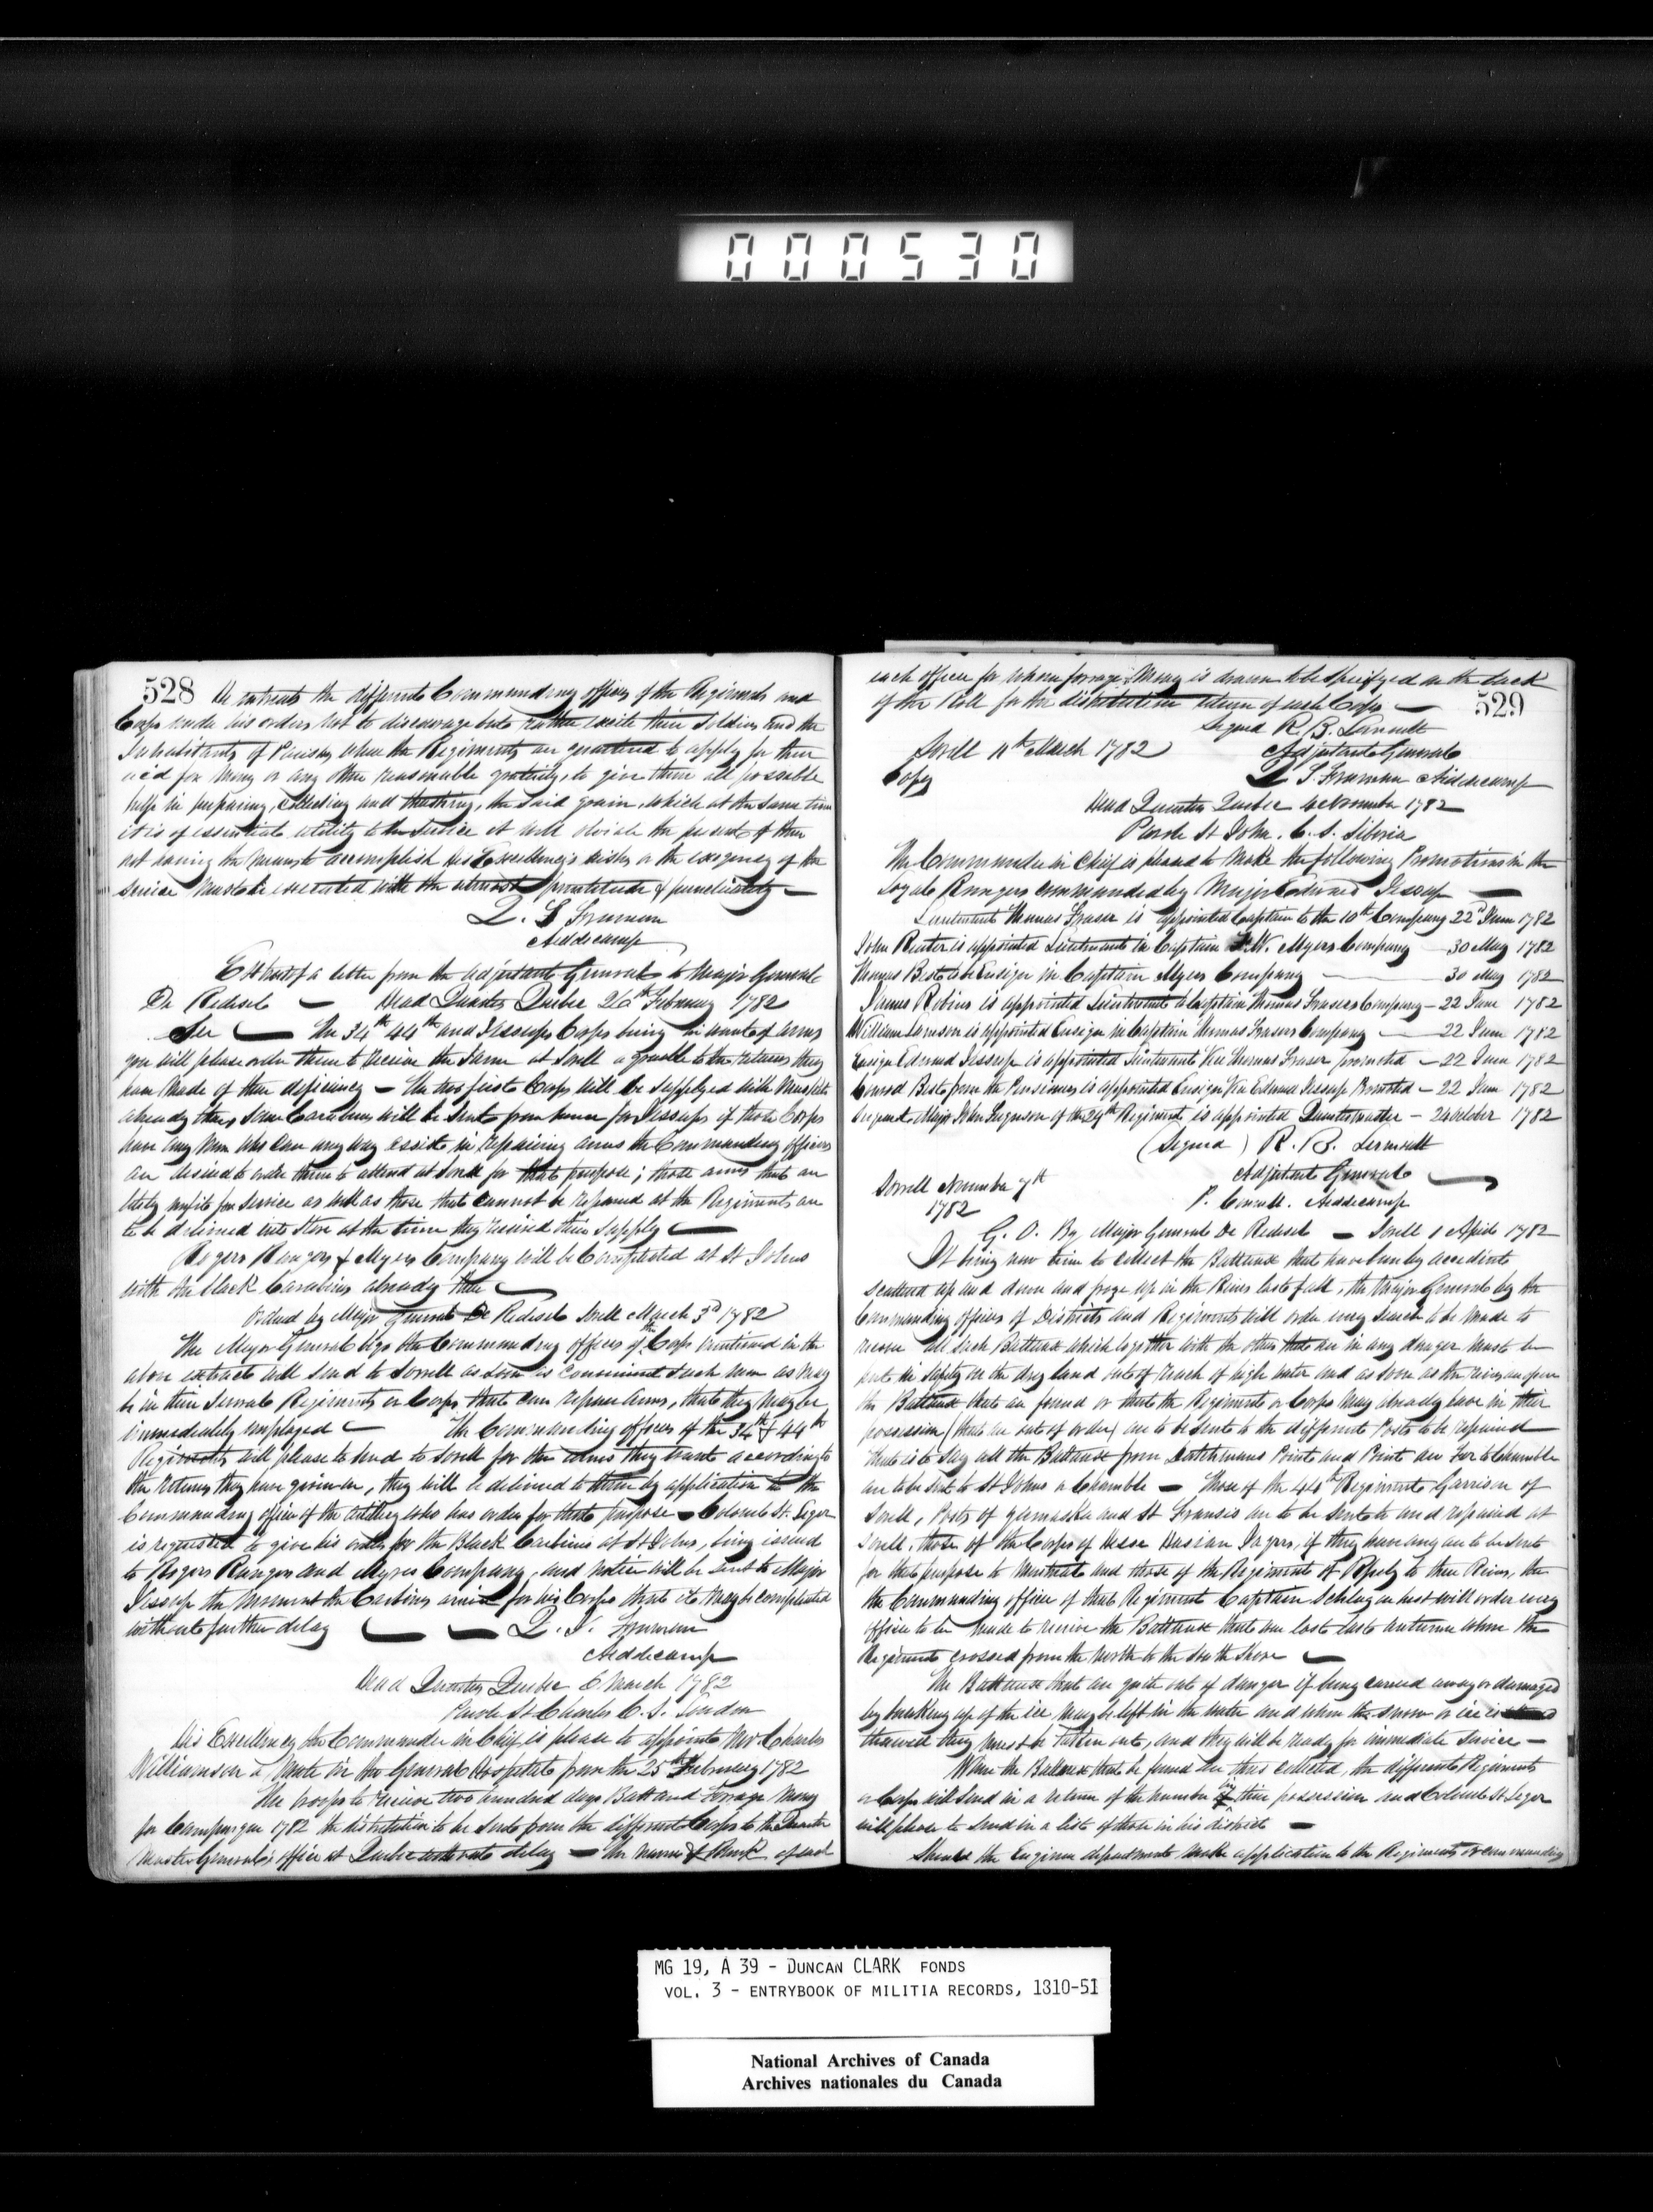 000530
528 He intreats the different Commanding officers of the Regiments and
Corps under his orders not to discourage but rather excite their Soldiers and the
Inhabitants of Parishes where the Regiments are quartered to apply for their
aid for Money or any other reasonable gratuity, to give them all possible
help in preparing, and thrashing, the said grain, which at the same time
it is of essential utility to the Service it will obviate the of their
not having the means to accomplish His Excellency's wishes or the exigency of the
Service must be executed with the utmost promtitude & punctuality —
Aiddecamp
Extract of a letter from the Adjutant General to Major General
De Redisel — Head Quarters Quebec 26th February 1782
Sir — The 34th 44th and Jessups Corps being in want of arms
you will please order them to receive the same at Sorell agreeable to the returns they
have made of their deficiency — The two first Corps will be supplyed with Musquets
already there, some Carabines will be sent from hence for Jessups if those Corps
have any men who can any way assist in repairing arms the Commanding officers
are desired to order them to attend at Sorell for that purpose; those arms that are
unfit for service as well as those that cannot be repaired at the Regiments are
to be delivered into Store at the time they received their supply —
Rogers Rangers & Myers Company will be Compleated at St Johns
with the black Carabines already there —
Orders by Major General De Redisel Sorell March 3d 1782
The Major General begs the Commanding officers of the Corps mentioned in the
above extract will send to Sorrell as soon as Convenient such men as may
be in their several Regiments or Corps, that can repair arms, that they may be
immediately employed — The Commanding officers of the 34th & 44th
Regiments will please to send to Sorell for the arms they want according to
the returns they have given in, they will be delivered to them by application to the
Commanding officer of the artillery who has orders for that purpose — Colonel St. Leger
is requested to give his orders for the Black Carbines at St Johns, being issued
to Rogers Rangers and Myres Company, and notice will be sent to Major
Jessup the moment the Carbines arrive for his Corps that it may be compleated
without further delay — —
Aiddecamp
Head Quarters Quebec 6 March 1782
Parole St Charles C. S. London
His Excellency the Commander in Chief is please to appoint Mr Charles
Williamson a Mate in the General Hospital from the 25th February 1782
The troops to receive two hundred days Batt and Forrage Money
for Campaign 1782 the distribution to be sent from the different Corps to the Quarter
Master General's office at Quebec without delay — The Names & Rank of each
each officer for whom forrage Money is drawn to be specifyed on the back
of the Roll for the distribution return of each Corps — 529
Signed R. B. Lernoult
Sorell 11th March 1782 Adjutant General
Copy Aiddecamp
Head Quarters Quebec November 1782
Parole St John. C. S. Siberia
The Commander in Chief is pleased to make the following Promotions in the
Loyal Rangers commanded by Major Edward Jessup —
Lieutenant Thomas Fraser is appointed Captain to the 10th Company 22d June 1782
John Ruiter is appointed Lieutenant in Captain Myers Company — 30 May 1782
Thomas Best to be Ensign in Captain Myers Company — 30 May 1782
James Robins is appointed Lieutenant to Captain Thomas Frasers Company — 22 June 1782
William Lamson is appointed Ensign in Captain Thomas Frasers Company — 22 June 1782
Ensign Edward Jessup is appointed Lieutenant Vice Thomas Fraser promoted — 22 June 1782
Conrod Best from the Pensioners is appointed Ensign Vice Edward Jessup Promoted — 22 June 1782
Serjeant Major John Ferguson of the 29th Regiment, is appointed Quartermaster — 24 October 1782
(Signed) R. B. Lernoult
Adjutant General —
Sorrell November 7th
1782
Aiddecamp
G. O. By Major General De Redisel — Sorell 1 April 1782
It being now time to collect the Batteaux that have been by accidents
scattered up and down and froze up in the River last fall, the Major General by the
Commanding officers of Districts and Regiments will order every search to be made to
recover all such Batteaux which together with the others that are in any danger must be
put in safety on the dry land out of reach of high water and as soon as the river are open
the Batteaux that are found or that the Regiment or Corps may already have in their
possession (that are out of order) are to be sent to the different Posts to be repaired
that is to say all the Batteaux from Dutchmans Point and Point au Fer to Chamble
are to be sent to St Johns or Chamble — Those of the 44th Regiment Garrison of
Sorell, Posts of Yamaska and St Fransis are to be sent to and repaired at
Sorell, those of the Corps of Hesse Hassian Jagers, if they have any are to be sent
for that purpose to Montreal and those of the Regiment of to Three Rivers, the
the Commanding officer of that Regiment Captain will order every
office to be made to receive the Batteaux that was lost last autumn when the
Regiment crossed from the North to the South Shore —
The Batteaux that are quite out of danger of being carried away or damaged
by breaking up of the ice may be left in the water and when the snow or ice is
thawed they must be taken out, and they will be ready for immediate Service —
When the Batteaux that be found are thus collected, the different Regiments
or Corps will send in a return of the number in their possession and Colonel St Leger
will please to send in a list of those in his district —
Should the Engineer department make application to the Regiments or commanding
MG 19, A 39 - DUNCAN CLARK FONDS
VOL. 3 - ENTRYBOOK OF MILITIA RECORDS, 1810-51
National Archives of Canada
Archives nationales du Canada